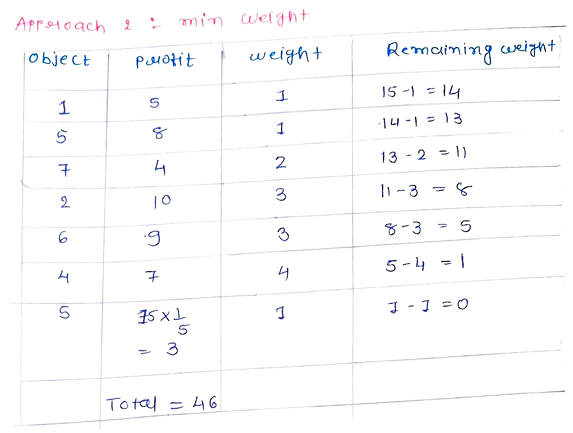 Approach 2 : min weight
object profit weight Remaining weight
1 5 1 15-1 = 14
5 8 1 14-1 = 13
7 4 2 13-2 = 11
2 10 3 11-3 = 8
6 9 3 8-3 = 5
4 7 4 5-4 = 1
5 15×1/5 1 1-1=0
= 3
Total = 46